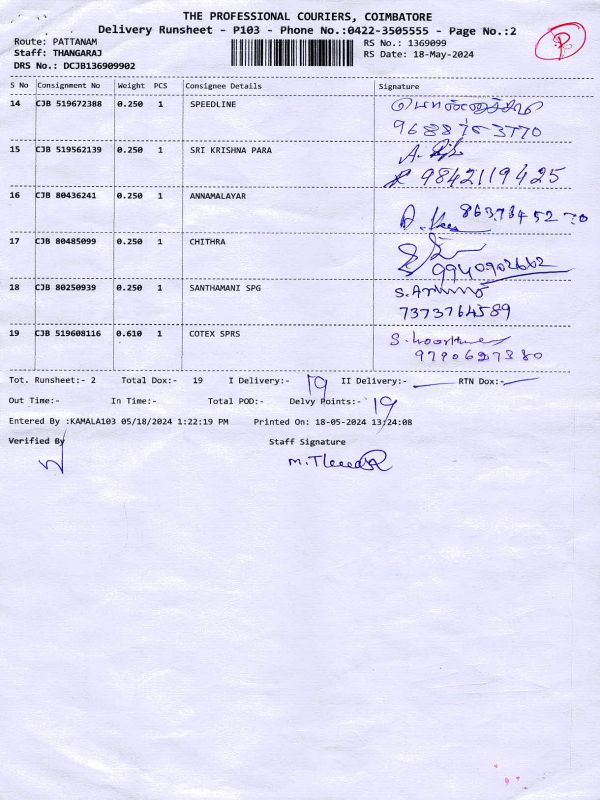 THE PROFESSIONAL COURIERS, COIMBATORE
Delivery Runsheet - P103 - Phone No.:0422-3505555 - Page No.:2
P
Route: PATTANAM RS No.: 1369099
Staff: THANGARAJ RS Date: 18-May-2024
DRS No.: DCJB136909902
S No Consignment No Weight PCS Consignee Details Signature
14 CJB 519672388 0.250 1 SPEEDLINE
15 CJB 519562139 0.250 1 SRI KRISHNA PARA
9842119425
16 CJB 80436241 0.250 1 ANNAMALAYAR
17 CJB 80485099 0.250 1 CHITHRA
9940902662
18 CJB 80250939 0.250 1 SANTHAMANI SPG
7373764589
19 CJB 519608116 0.610 1 COTEX SPRS
Tot. Runsheet:- 2 Total Dox:- 19 I Delivery:- 19 II Delivery:- RTN Dox:-
Out Time:- In Time:- Total POD:- Delvy Points:- 19
Entered By :KAMALA103 05/18/2024 1:22:19 PM Printed On: 18-05-2024 13:24:08
Verified By Staff Signature